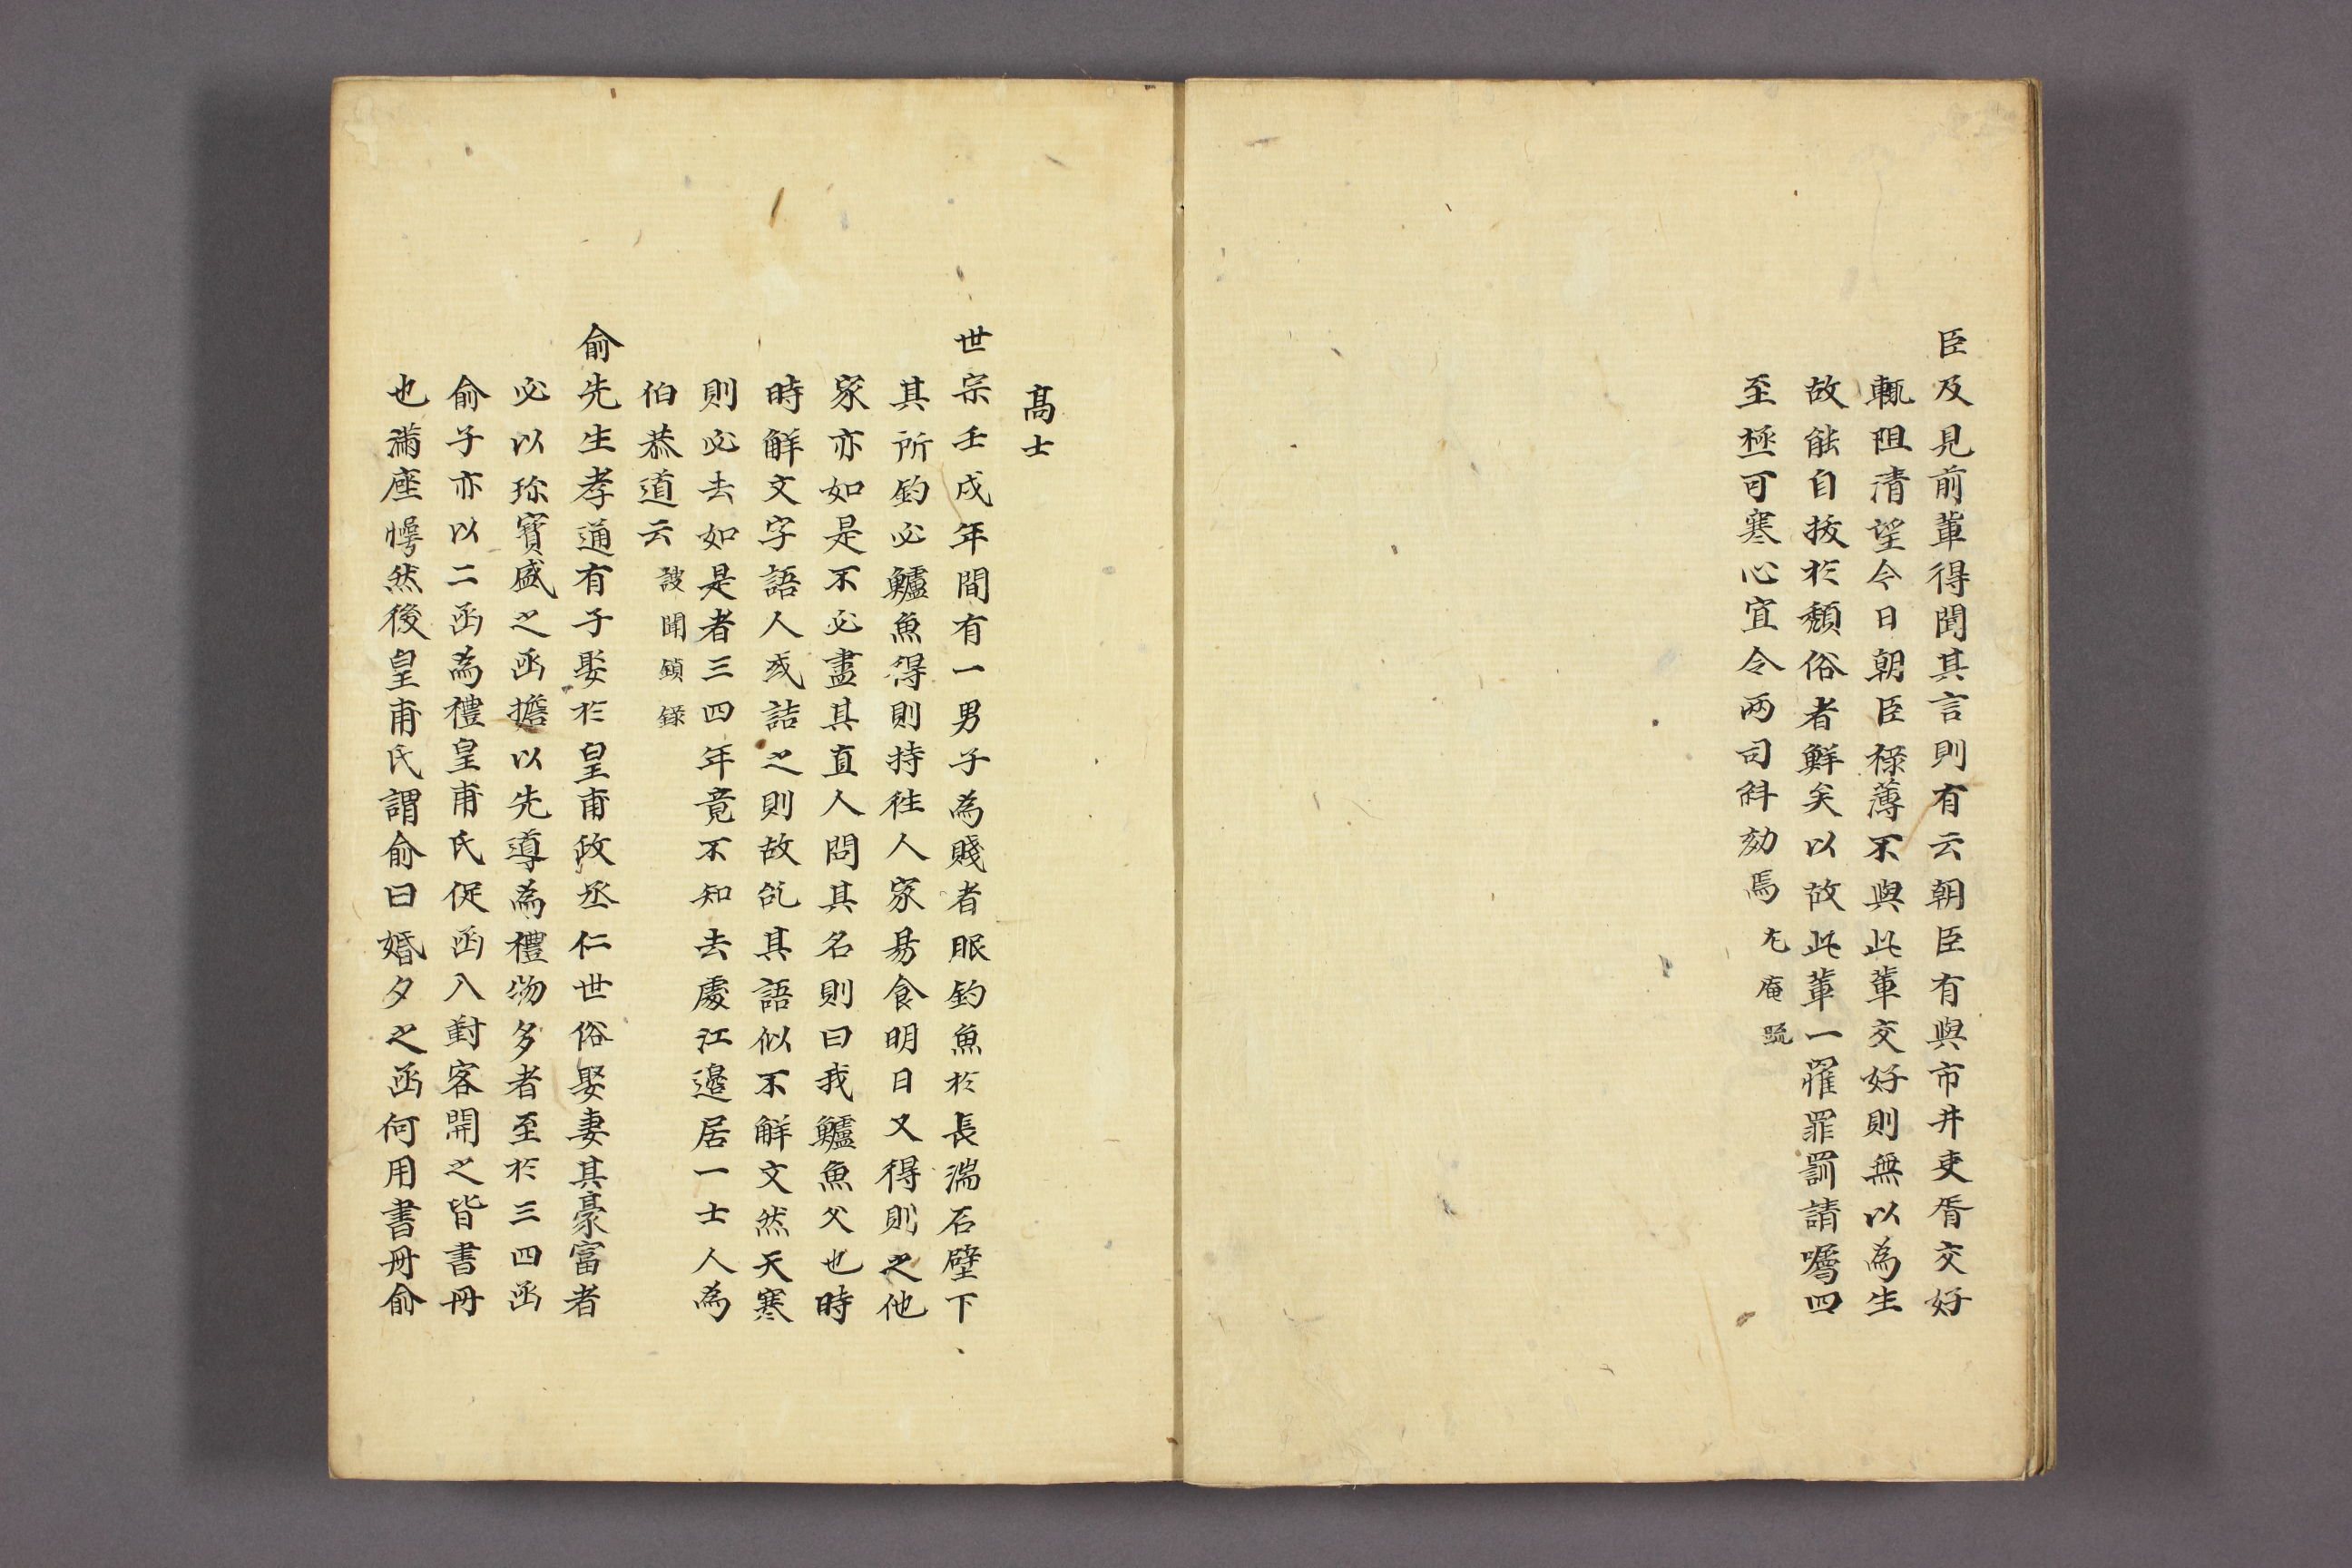 臣及見前輩得聞其言則有云朝臣有與市井吏胥交好
輒阻清望今日朝臣祿薄不與此輩交好則無以為生
故能自拔於頹俗者鮮矣以故此輩一罹罪罰請囑四
至極可寒心宜令兩司糾劾焉 尤庵疏
高士
世宗壬戌年間有一男子為賤者服釣魚於長湍石壁下
其所釣必鱸魚得則持往人家易食明日又得則之他
家亦如是不必盡其直人問其名則曰我鱸魚父也時
時解文字語人或詰之則故訖其語似不解文然天寒
則必去如是者三四年竟不知去處江邊居一士人為
伯恭道云 謏聞鎖錄
俞先生孝通有子娶於皇甫政丞仁世俗娶妻其豪富者
必以珎寶盛之函擔以先導為禮物多者至於三四函
俞子亦以二函為禮皇甫氏促函入對客開之皆書冊
也滿座愕然後皇甫氏謂俞曰婚夕之函何用書冊俞